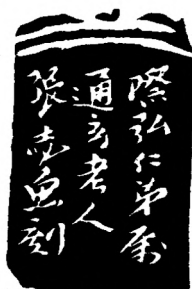 際弘仁弟属
通玄老人
張志魚刻